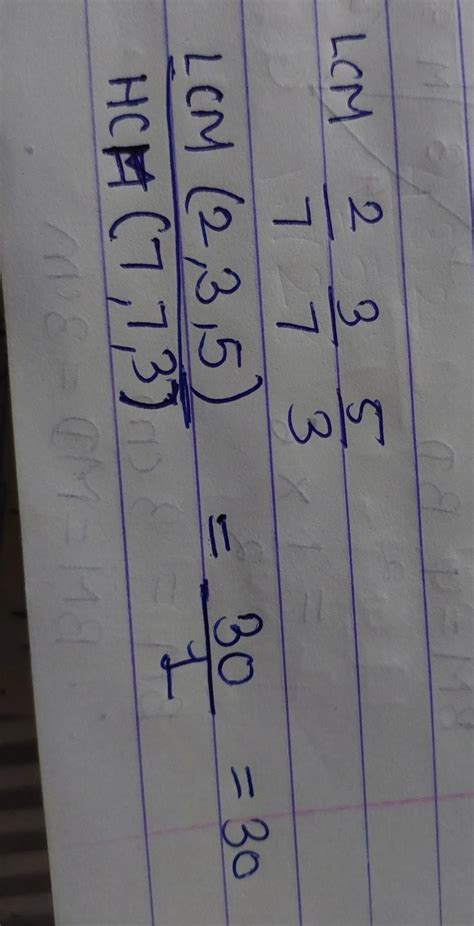 LCM 2/7 3/7 5/3
LCM (2,3,5) / HCM (7,7,3) = 30/1 = 30